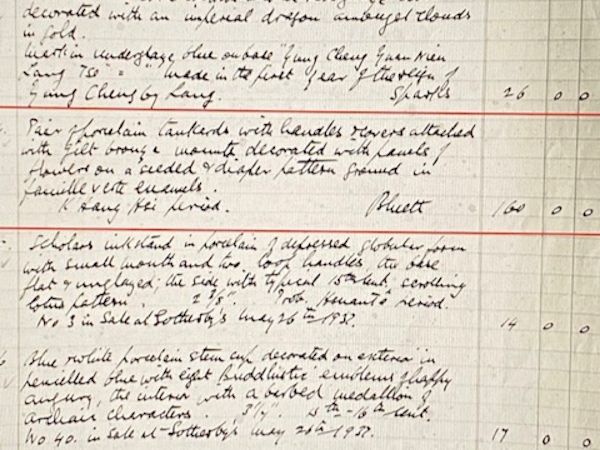 decorated with an imperial dragon amongst clouds
in gold.
Mark in underglaze blue on base "Yung Cheng Yuan Nien
Lang Tso" = "made in the first year of the reign of
Yung Cheng by Lang. Sparks 26 0 0
Pair of porcelain tankards with handles & covers attached
with gilt bronze mounts decorated with panels of
flowers on a seeded & diaper pattern ground in
famille verte enamels.
K'ang Hsi period. Bluett 160 0 0
Scholars inkstand in porcelain of depressed globular form
with small mouth and two loop handles the base
flat & unglazed; the side with typical 15th cent. scrolling
lotus pattern. 2 3/8". Prob. period.
No 3 in Sale at Sotheby's May 26th 1937. 14 0 0
Blue & white porcelain stem cup decorated on exterior in
pencilled blue with eight Buddhistic emblems of happy
augury, the interior with a barbed medallion of
archaic characters. 15th-16th cent.
No 40. in Sale at Sotheby's May 26th 1937. 17 0 0